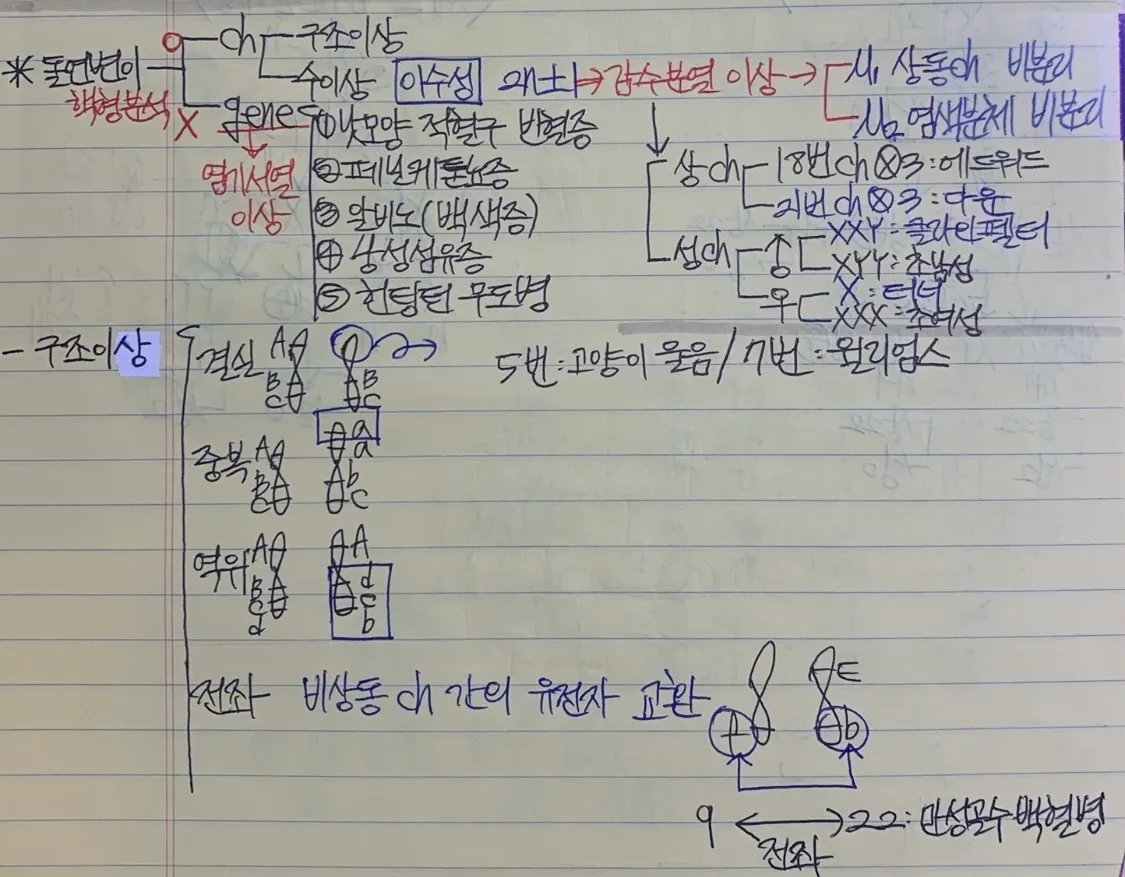 ch 구조이상
* 돌연변이 수이상 이수성 2n±1 → 감수분열 이상 → M1 상동ch 비분리
핵형분석 X genes ① 낫모양 적혈구 빈혈증 M2 염색분체 비분리
염기서열 ② 페닐케톤뇨증 상ch 18번 ch ⊗3 : 에드워드
이상 ③ 알비노(백색증) 21번 ch ⊗3 : 다운
④ 낭성섬유증 성ch ♂ XXY : 클라인펠터
XYY : 초남성
⑤ 헌팅턴 무도병 우 X : 터너
XXX : 초여성
- 구조이상 결실 A B C B C 5번 : 고양이 울음 / 7번 : 윌리엄스
중복 A B C a a b c
역위 A B C d A d c b
전좌 비상동 ch 간의 유전자 교환 E b
9 ↔ 22 : 만성골수 백혈병
전좌